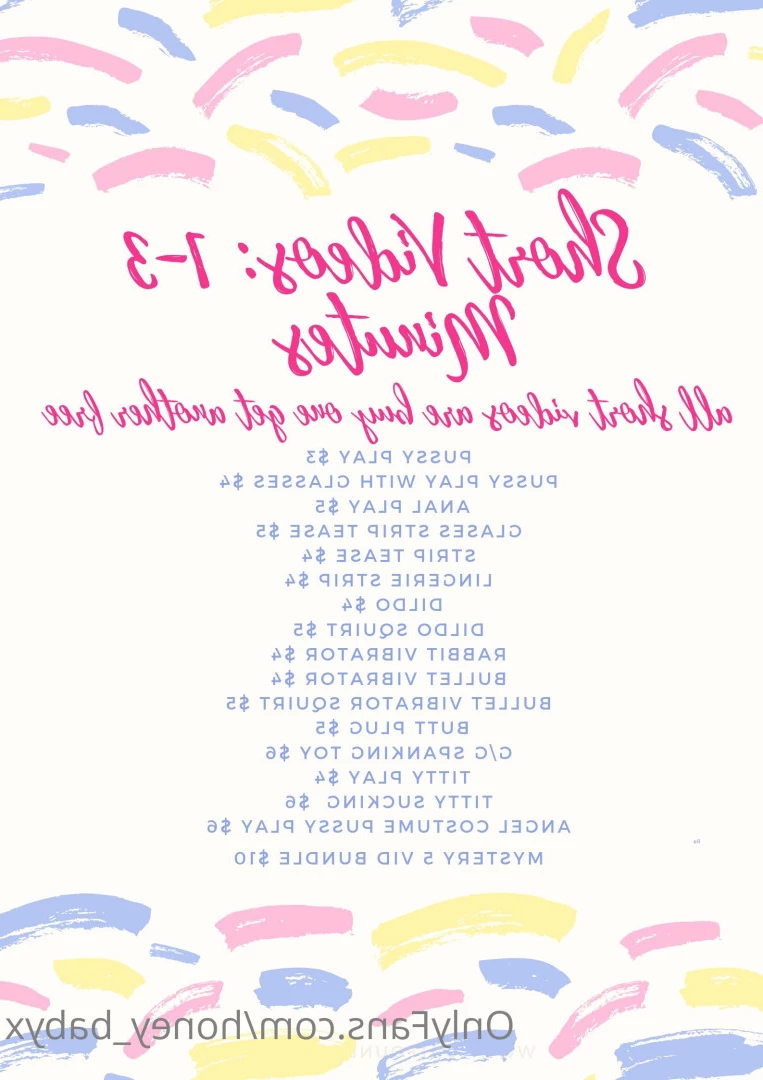 Short Videos: 1-3
Minutes
all short videos are buy one get another free
PUSSY PLAY $3
PUSSY PLAY WITH GLASSES $4
ANAL PLAY $5
GLASES STRIP TEASE $5
STRIP TEASE $4
LINGERIE STRIP $4
DILDO $4
DILDO SQUIRT $5
RABBIT VIBRATOR $4
BULLET VIBRATOR $4
BULLET VIBRATOR SQUIRT $5
BUTT PLUG $5
G/G SPANKING TOY $6
TITTY PLAY $4
TITTY SUCKING $6
ANGEL COSTUME PUSSY PLAY $6
MYSTERY 5 VID BUNDLE $10
OnlyFans.com/honey_babyx